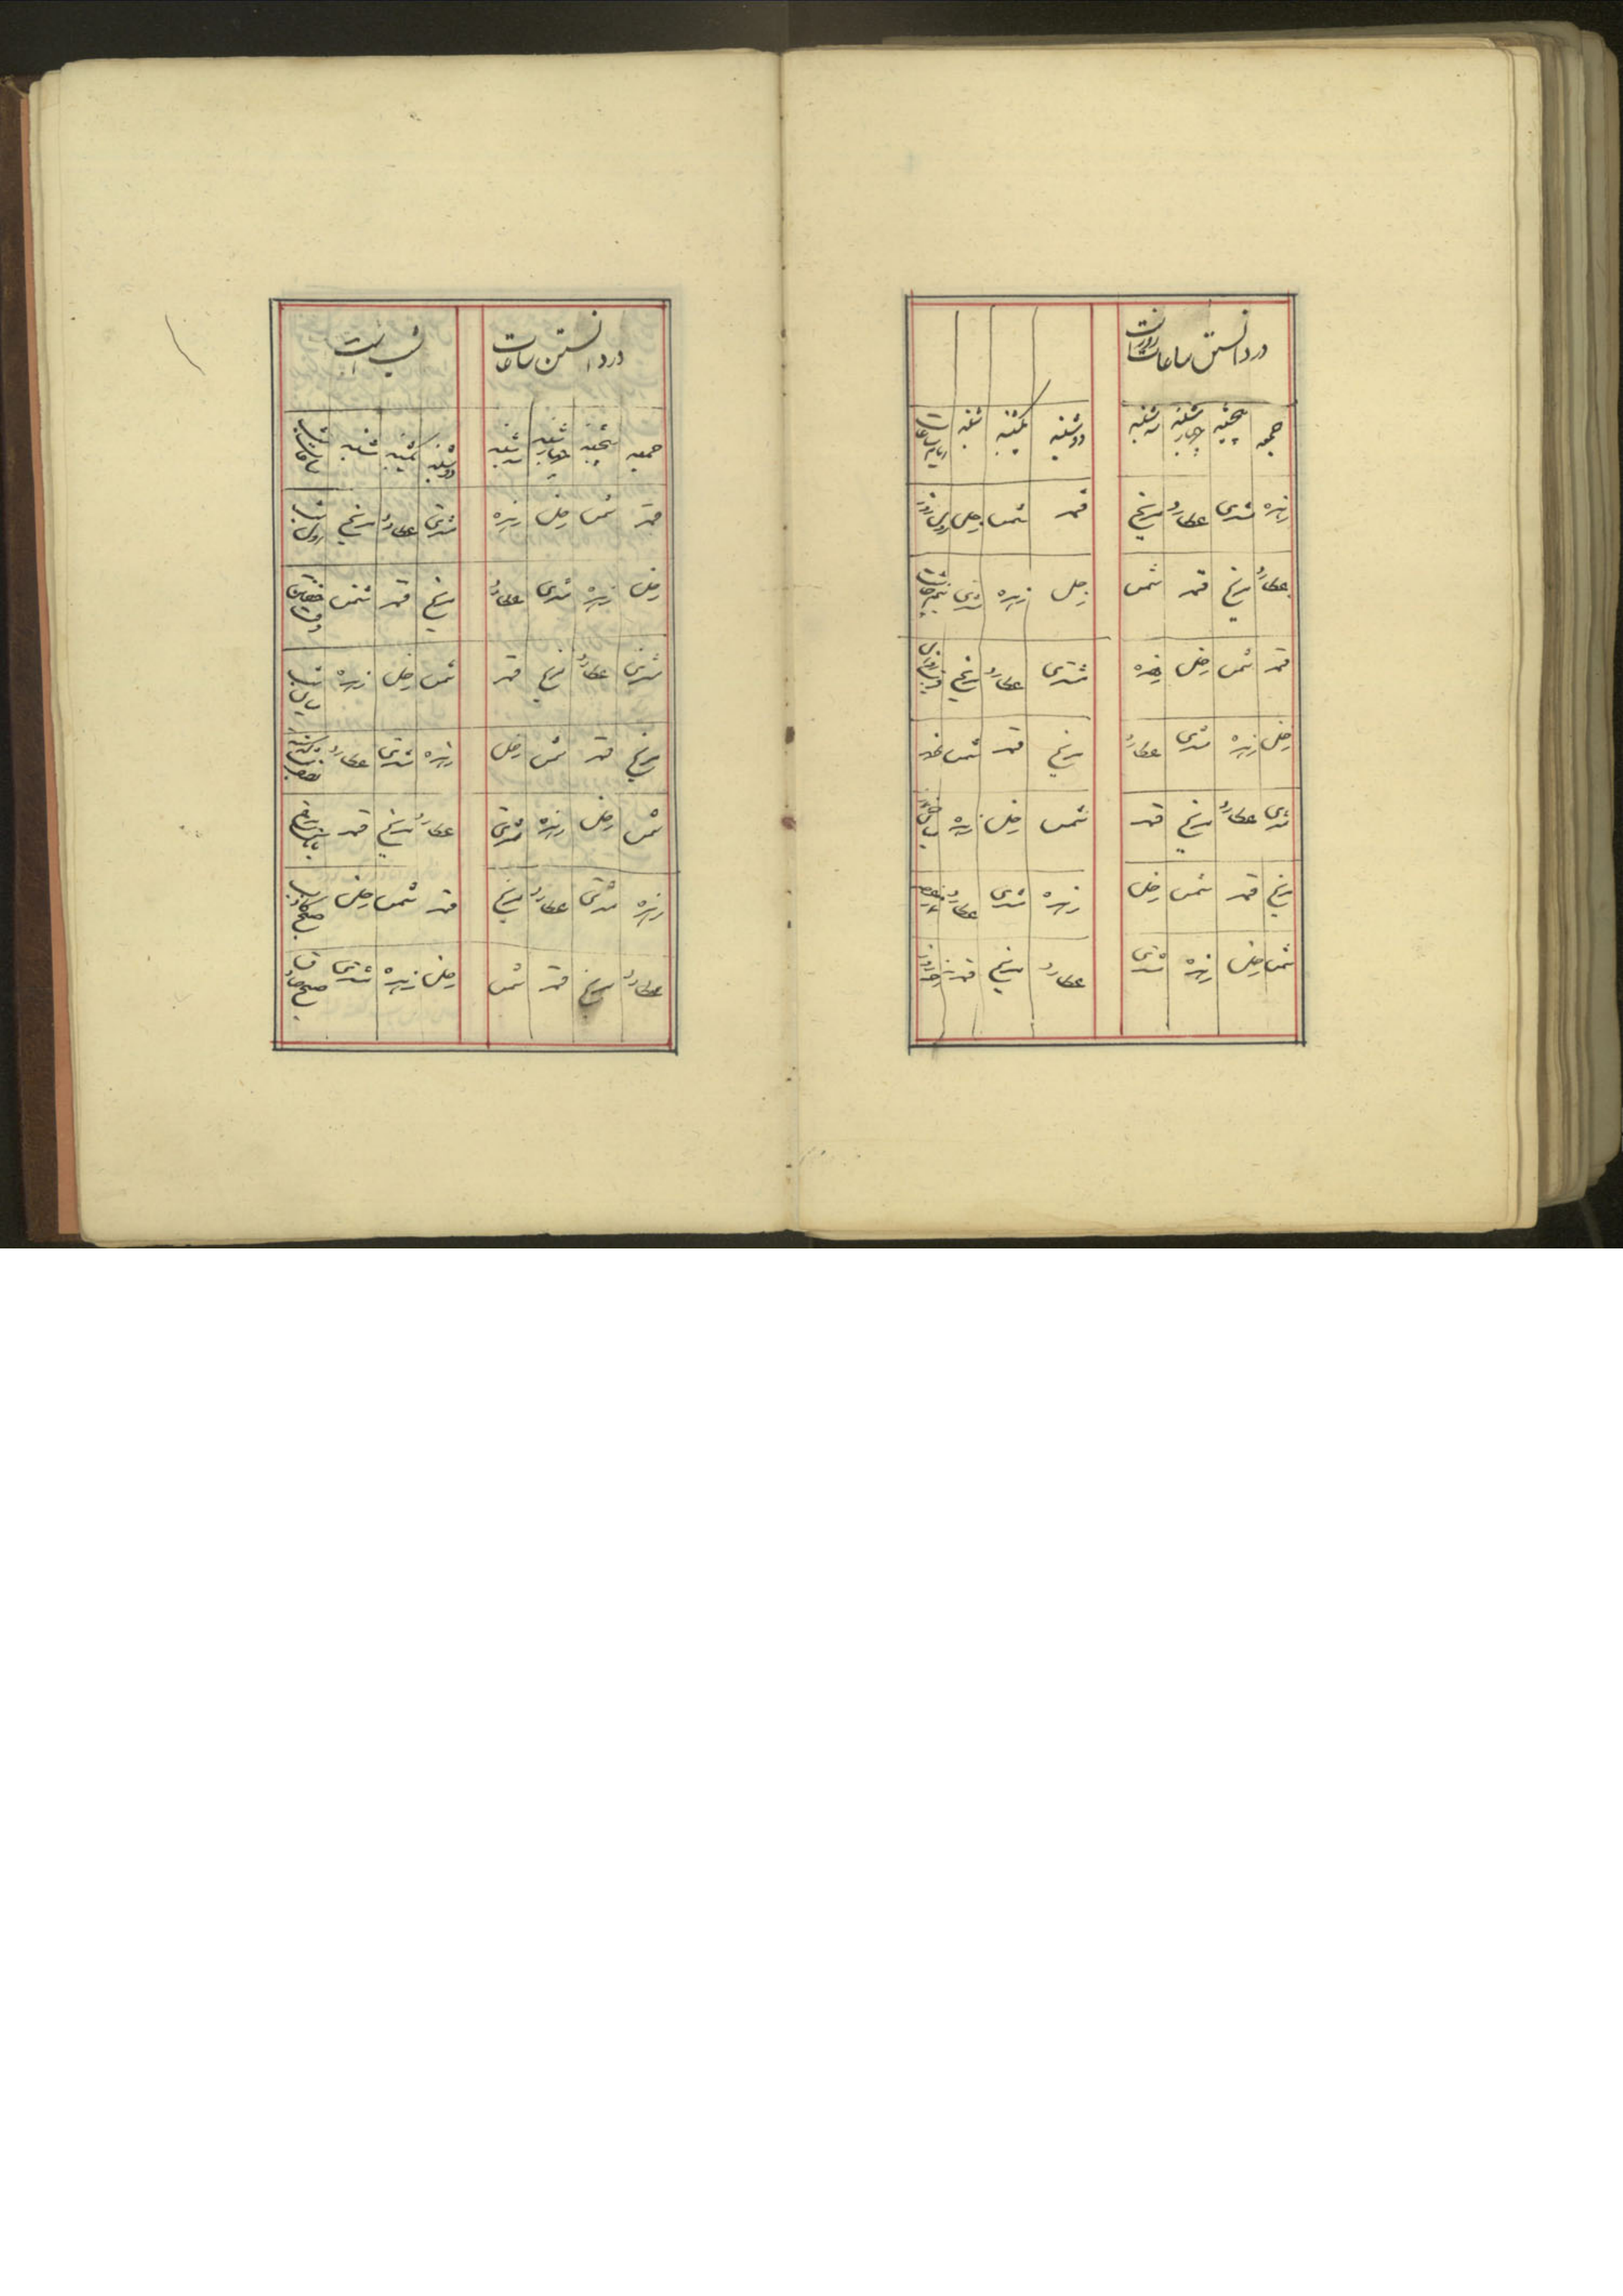 در دانستن ساعات روز است
جمعه پنجشنبه چهارشنبه سه شنبه دوشنبه یکشنبه شنبه
زهره مشتری عطارد مریخ قمر شمس زحل اول روز
عطارد مریخ قمر شمس زحل زهره مشتری
قمر شمس زحل زهره مشتری عطارد مریخ
زحل زهره مشتری عطارد مریخ قمر شمس
مشتری عطارد مریخ قمر شمس زحل زهره
مریخ قمر شمس زحل زهره مشتری عطارد
شمس زحل زهره مشتری عطارد مریخ قمر
در دانستن ساعات شب است
جمعه پنجشنبه چهارشنبه سه شنبه دوشنبه یکشنبه شنبه ساعات شب
قمر شمس زحل زهره مشتری عطارد مریخ اول شب
زحل زهره مشتری عطارد مریخ قمر شمس وقت خفتن
مشتری عطارد مریخ قمر شمس زحل زهره
مریخ قمر شمس زحل زهره مشتری عطارد
شمس زحل زهره مشتری عطارد مریخ قمر
زهره مشتری عطارد مریخ قمر شمس زحل صبح کاذب
عطارد مریخ قمر شمس زحل زهره مشتری صبح صادق